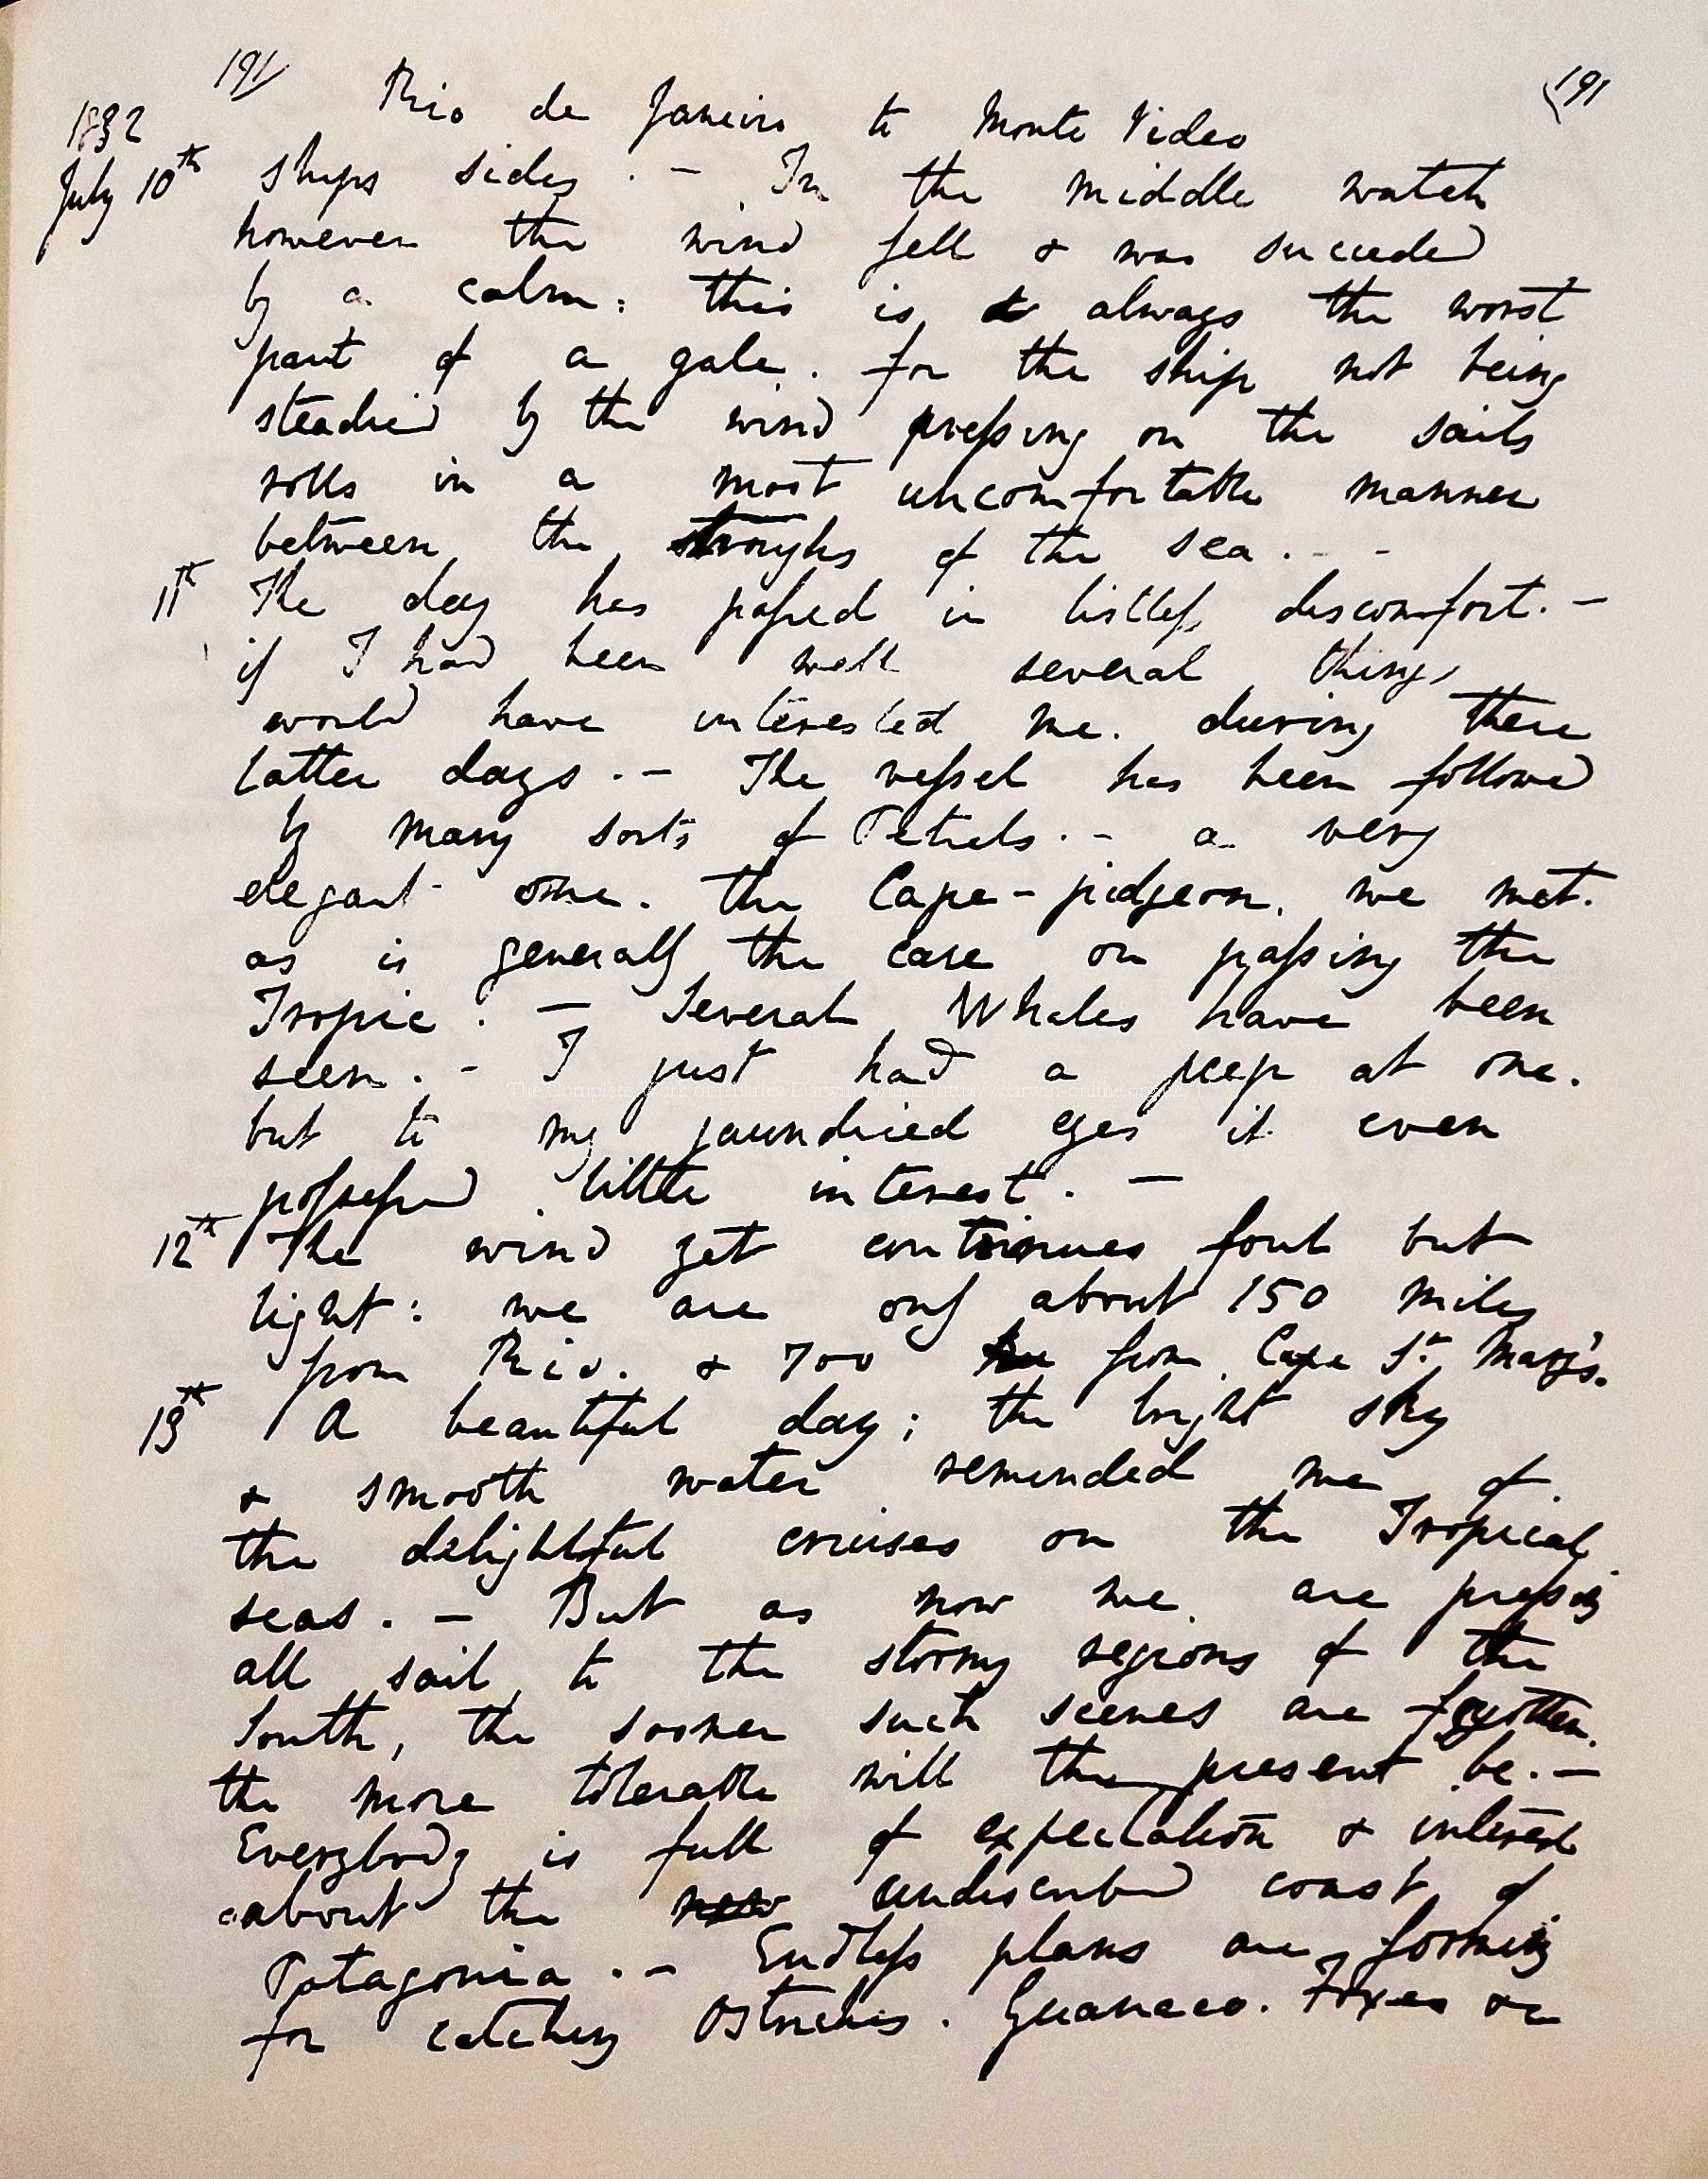 191 Rio de Janeiro to Monte Video (191
1832
July 10th ships sides. — In the middle watch
however the wind fell & was succeeded
by a calm: this is always the worst
part of a gale. for the ship not being
steadied by the wind pressing on the sails
rolls in a most uncomfortable manner
between the troughs of the sea. - -
11th The day has passed in listless discomfort. —
if I had been well several things
would have interested me. during these
latter days. — The vessel has been followed
by many sorts of Petrels. — a very
elegant one. the Cape-pidgeon, we met.
as is generally the case on passing the
Tropic. — Several Whales have been
seen. - I just had a peep at one.
but to my jaundiced eyes it even
possessed little interest. —
12th The wind yet continues foul but
light: we are only about 150 miles
from Rio. & 700 from Cape St. Mary's.
13th A beautiful day; the bright sky
& smooth water reminded me of
the delightful cruises on the Tropical
seas. — But as now we are pressing
all sail to the stormy regions of the
South, the sooner such scenes are forgotten.
the more tolerable will the present be. —
Everybody is full of expectation & interest
about the new undescribed coast of
Patagonia. — Endless plans are forming
for catching Ostriches. Guanaco. Foxes &c